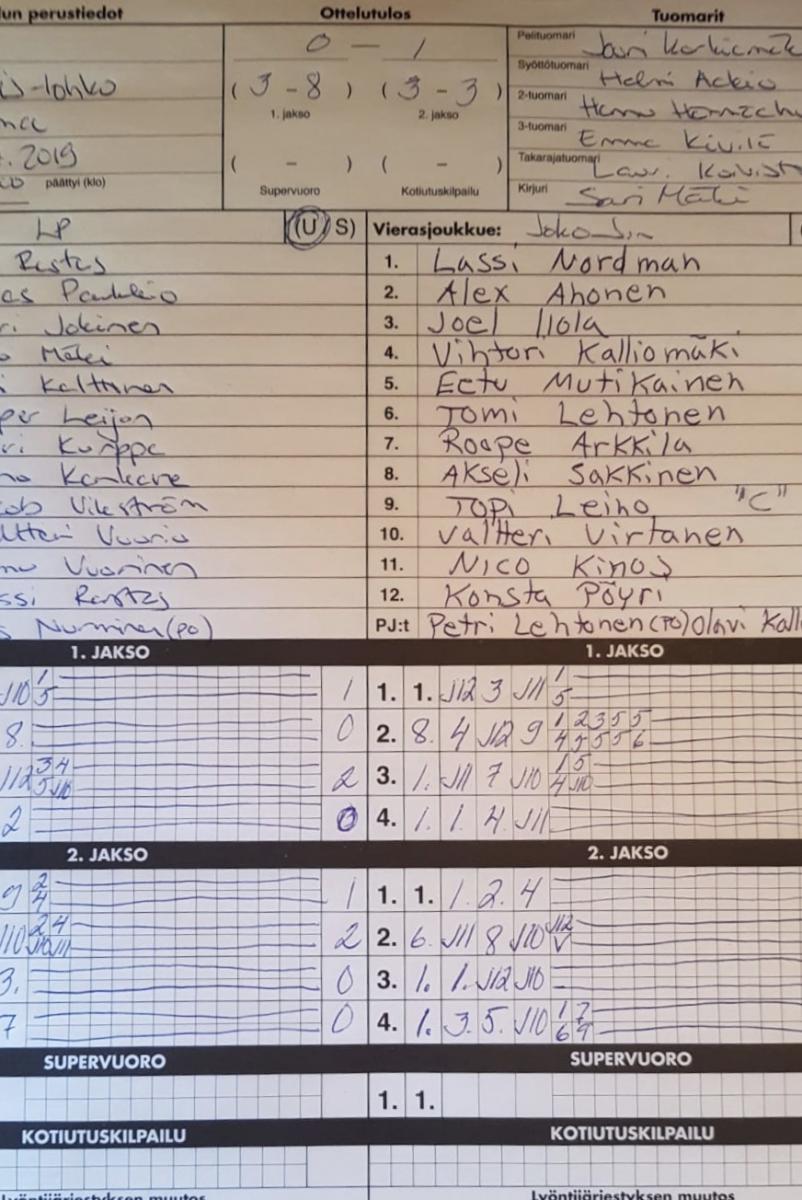 lun perustiedot Ottelutulos Tuomarit
0 - 1
Pelituomari Jari
( 3 - 8 ) ( 3 - 3 )
Syöttötuomari Helmi
is-lohko
1. jakso 2. jakso
2-tuomari
3-tuomari Emma
. 2019
Takarajatuomari
päättyi (klo) ( - ) ( - )
Supervuoro Kotiutuskilpailu Kirjuri Sari Mäki
LP (U / S) Vierasjoukkue:
1. Lassi Nordman
2. Alex Ahonen
ri Jokinen 3. Joel Ilola
Mäki 4. Vihtori Kalliomäki
Kalttinen 5. Eetu Mutikainen
per Leijon 6. Tomi Lehtonen
ri Kurppa 7. Roope Arkkila
8. Akseli Sakkinen
ob Vikström 9. Topi Leino "C"
Vuorio 10. Valtteri Virtanen
Vuorinen 11. Nico Kinos
ssi 12. Konsta Pöyri
s Nurminen (PO) PJ:t Petri Lehtonen (PO) Olavi Kall
1. JAKSO 1. JAKSO
J10 1/5 1 1. 1. J12 3 J11 1/5
8. 0 2. 8. 4 J12 9 1/4 2/5 3/5 5/5 5/6
J12 3/5 4/J10 2 3. 1. J11 7 J10 1/4 5/J10
2 0 4. 1. 1. 4. J11
2. JAKSO 2. JAKSO
9 2/4 1 1. 1. 1. 2. 4
J10 2/J10 4/J11 2 2. 6. J11 8 J10 J12/V
3. 0 3. 1. 1. J12 J10
7 0 4. 1. 3. 5. J10 1/6 7/9
SUPERVUORO SUPERVUORO
1. 1.
KOTIUTUSKILPAILU KOTIUTUSKILPAILU
Lyöntijärjestyksen muutos Lyöntijärjestyksen muutos